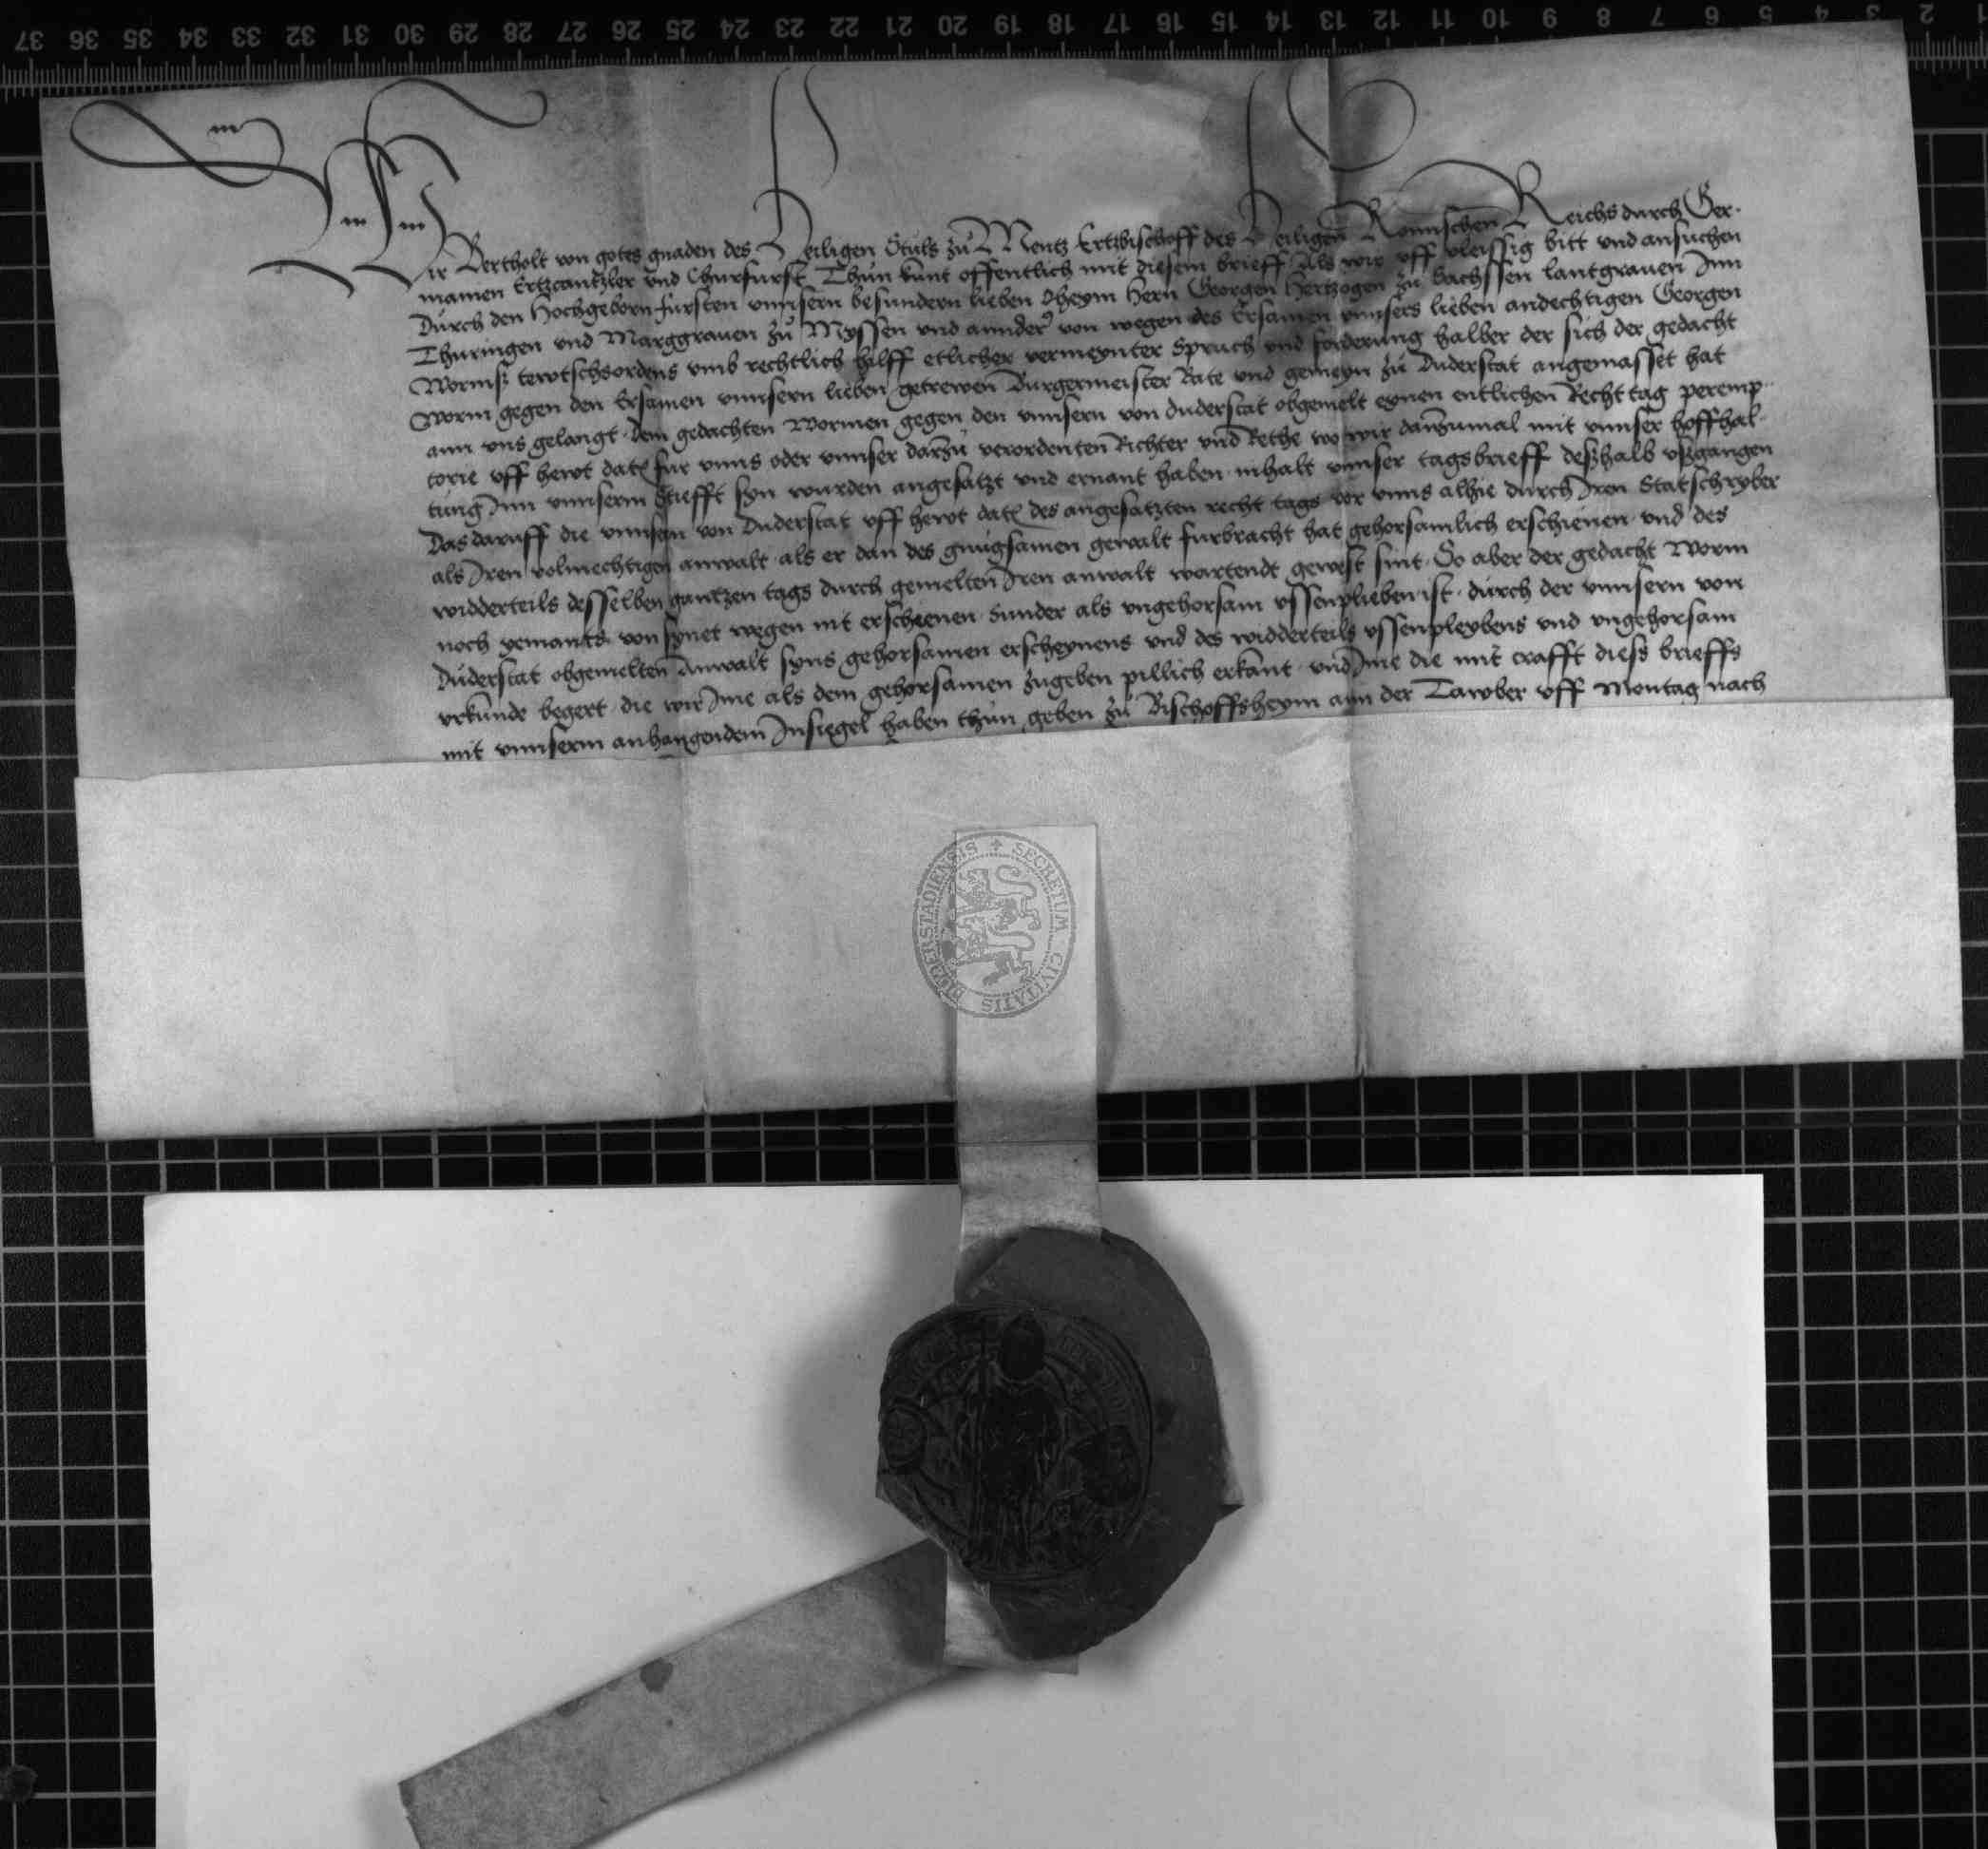 37 36 35 34 33 32 31 30 29 28 27 26 25 24 23 22 21 20 19 18 17 16 15 14 13 12 11 10 9 8 7 6 5 4 3 2 1
Wir Bertholt von gotes gnaden des Heiligen Stuls zů Mentz Ertzbischoff des Heiligen Romischen Reichs durch Ger-
manien Ertzcantzler und Churfurst Thun kunt offentlich mit diesem brieff Als wir uff vleissig bitt und ansuchen
Durch den Hochgeborn fursten unnsern besundern lieben Oheym Hern Georgen Hertzogen zů Sachssen lantgrauen Inn
Thuringen und Marggrauen zů Myssen und annder von wegen des Ersamen unnsers lieben andechtigen Georgen
Wormß tewtschsordens umb rechtlich hilff etlicher vermeynter Spruch und forderung halber der sich der gedacht
Worm gegen den Ersamen unnsern lieben getrewen Burgermeister Rate und gemeyn zů Duderstat angemasset hat
ann uns gelangt dem gedachten Wormen gegen den unnsern von duderstat obgemelt eynen entlichen Recht tag peremp-
torie uff hewt dat fur unns oder unnser darzu verordenten Richter und Rethe wo wir danzumal mit unnser hoffhal-
tung Inn unnserm Stiefft syn wurden angesatzt und ernant haben inhalt unnser tagsbrieff deßhalb ußgangen
Das daruff die unnsern von Duderstat uff hewt dat des angesatzten recht tags vor unns alhie durch Iren Statschryber
als Iren volmechtigen anwalt als er dan des gnugsamen gewalt furbracht hat gehorsamlich erschienen und des
widderteils desselben gantzen tags durch gemelten Iren anwalt wartendt gewest sint So aber der gedacht Worm
noch yemants von synet wegen nit erschienen sunder als ungehorsam ussenplieben ist durch der unnsern von
Duderstat obgemelten Anwalt syns gehorsamen erscheynens und des widderteils ussenpleybens und ungehorsam
urkunde begert die wir Ime als dem gehorsamen zugeben pillich erkant und Ime die mit crafft dieß brieffs
mit unnserm anhangendem Insiegel haben thun geben zů Bischoffsheym ann der Tawber uff Montag nach
SECRETUM CIVITATIS DUDERSTADIENSIS